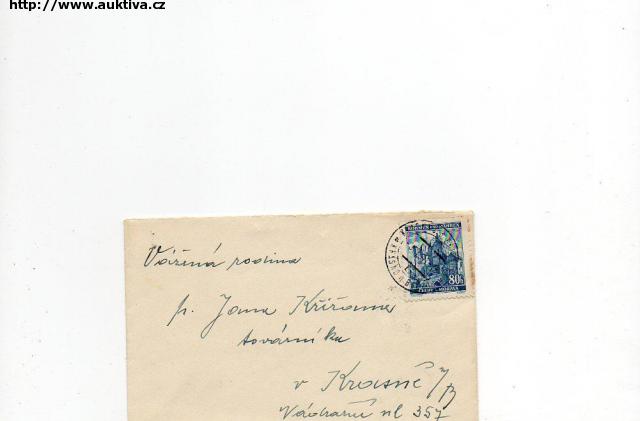 http://www.auktiva.cz
BÖHMEN UND MÄHREN
80h
ČECHY A MORAVA
Vážená rodina
p. Jana Křižana
továrníka
v Krásné n/B
Nádražní ul 357